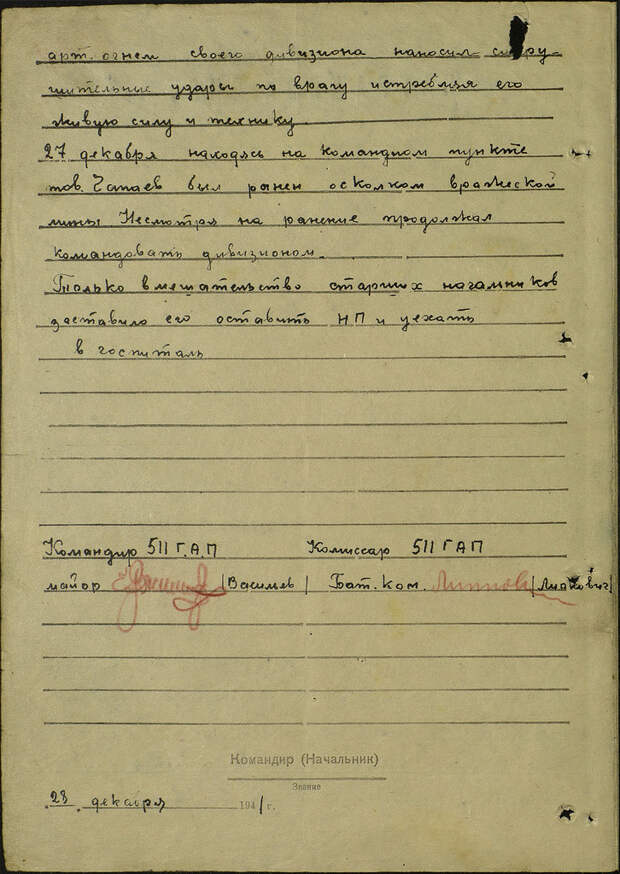 арт. огнем своего дивизиона наносил сокру-
шительные удары по врагу истребляя его
живую силу и технику.
27 декабря находясь на командном пункте
тов. Чапаев был ранен осколком вражеской
мины. Несмотря на ранение продолжал
командовать дивизионом.
Только вмешательство старших начальников
заставило его оставить НП и уехать
в госпиталь
Командир 511 Г.А.П Комиссар 511 ГАП
майор /Васильев/ Бат. ком.
Командир (Начальник)
Звание
"28" декабря 1941 г.